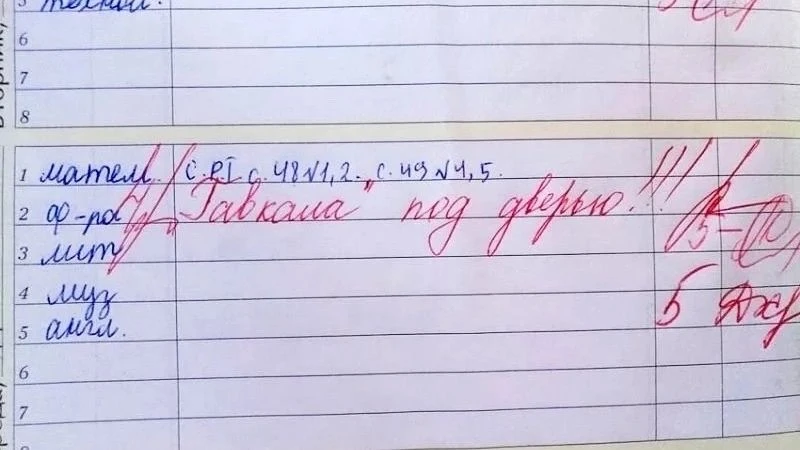 5 технол.
6
7
8
1 матем. С. РТ с. 48 №1,2. с. 49 №4,5.
2 ф-ра "Гавкала" под дверью!!!
3 лит 5-
4 муз
5 англ. 5
6
7